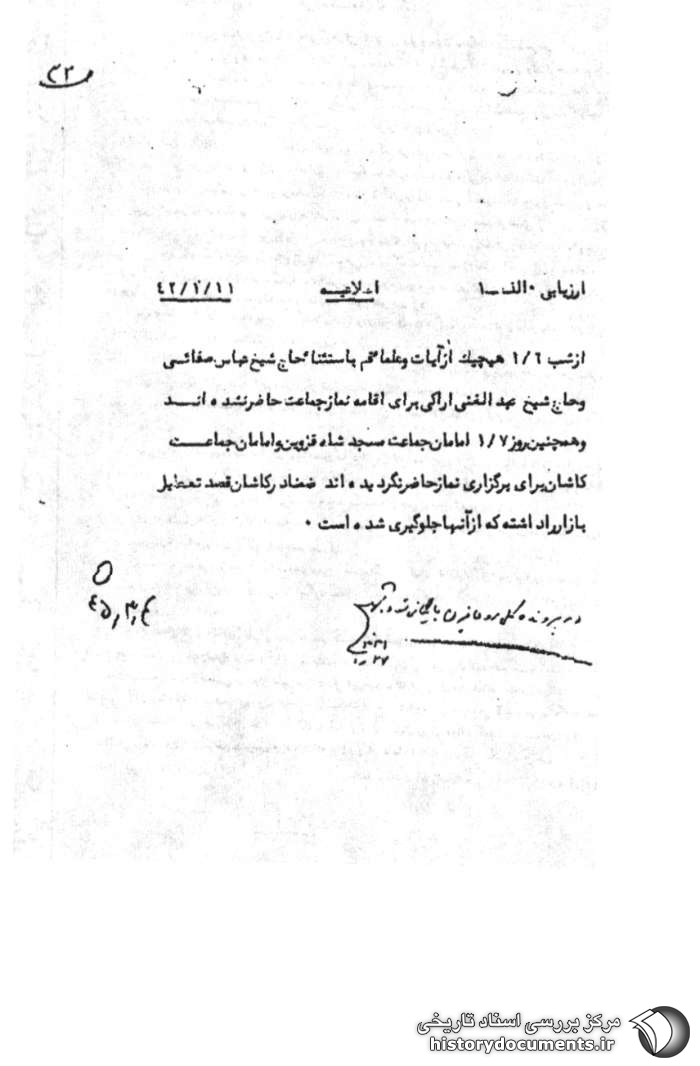 ۳۲
ارزیابی ۰ الف ــ ۱ اطلاعیـــه ٤٢/١/١١
ازشب ١/٦ هیچیك ازآیات وعلما ٔقم باستثنا ٔحاج شیخ عباس صفائـــی
وحاج شیخ عبد الغنی اراکی برای اقامه نمازجماعت حاضرنشد ه انـــد
وهمچنین روز ١/٧ امامان جماعت مسجد شاه قزوین وامامان جماعـــت
کاشان برای برگزاری نمازحاضرنگرد ید ه اند ضمناد رکاشان قصد تعطیل
بازارراد اشته که ازآنهاجلوگیری شد ه است ۰
در پرونده کلی روحانیون بایگانی شود
مرکز بررسی اسناد تاریخی
historydocuments.ir